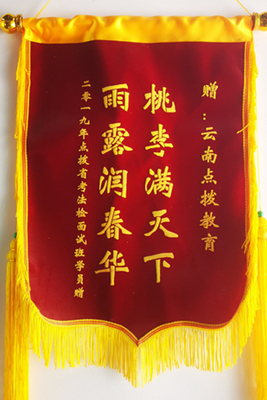 赠：云南点拨教育
桃李满天下
雨露润春华
二零一九年点拨省考法检面试班学员赠